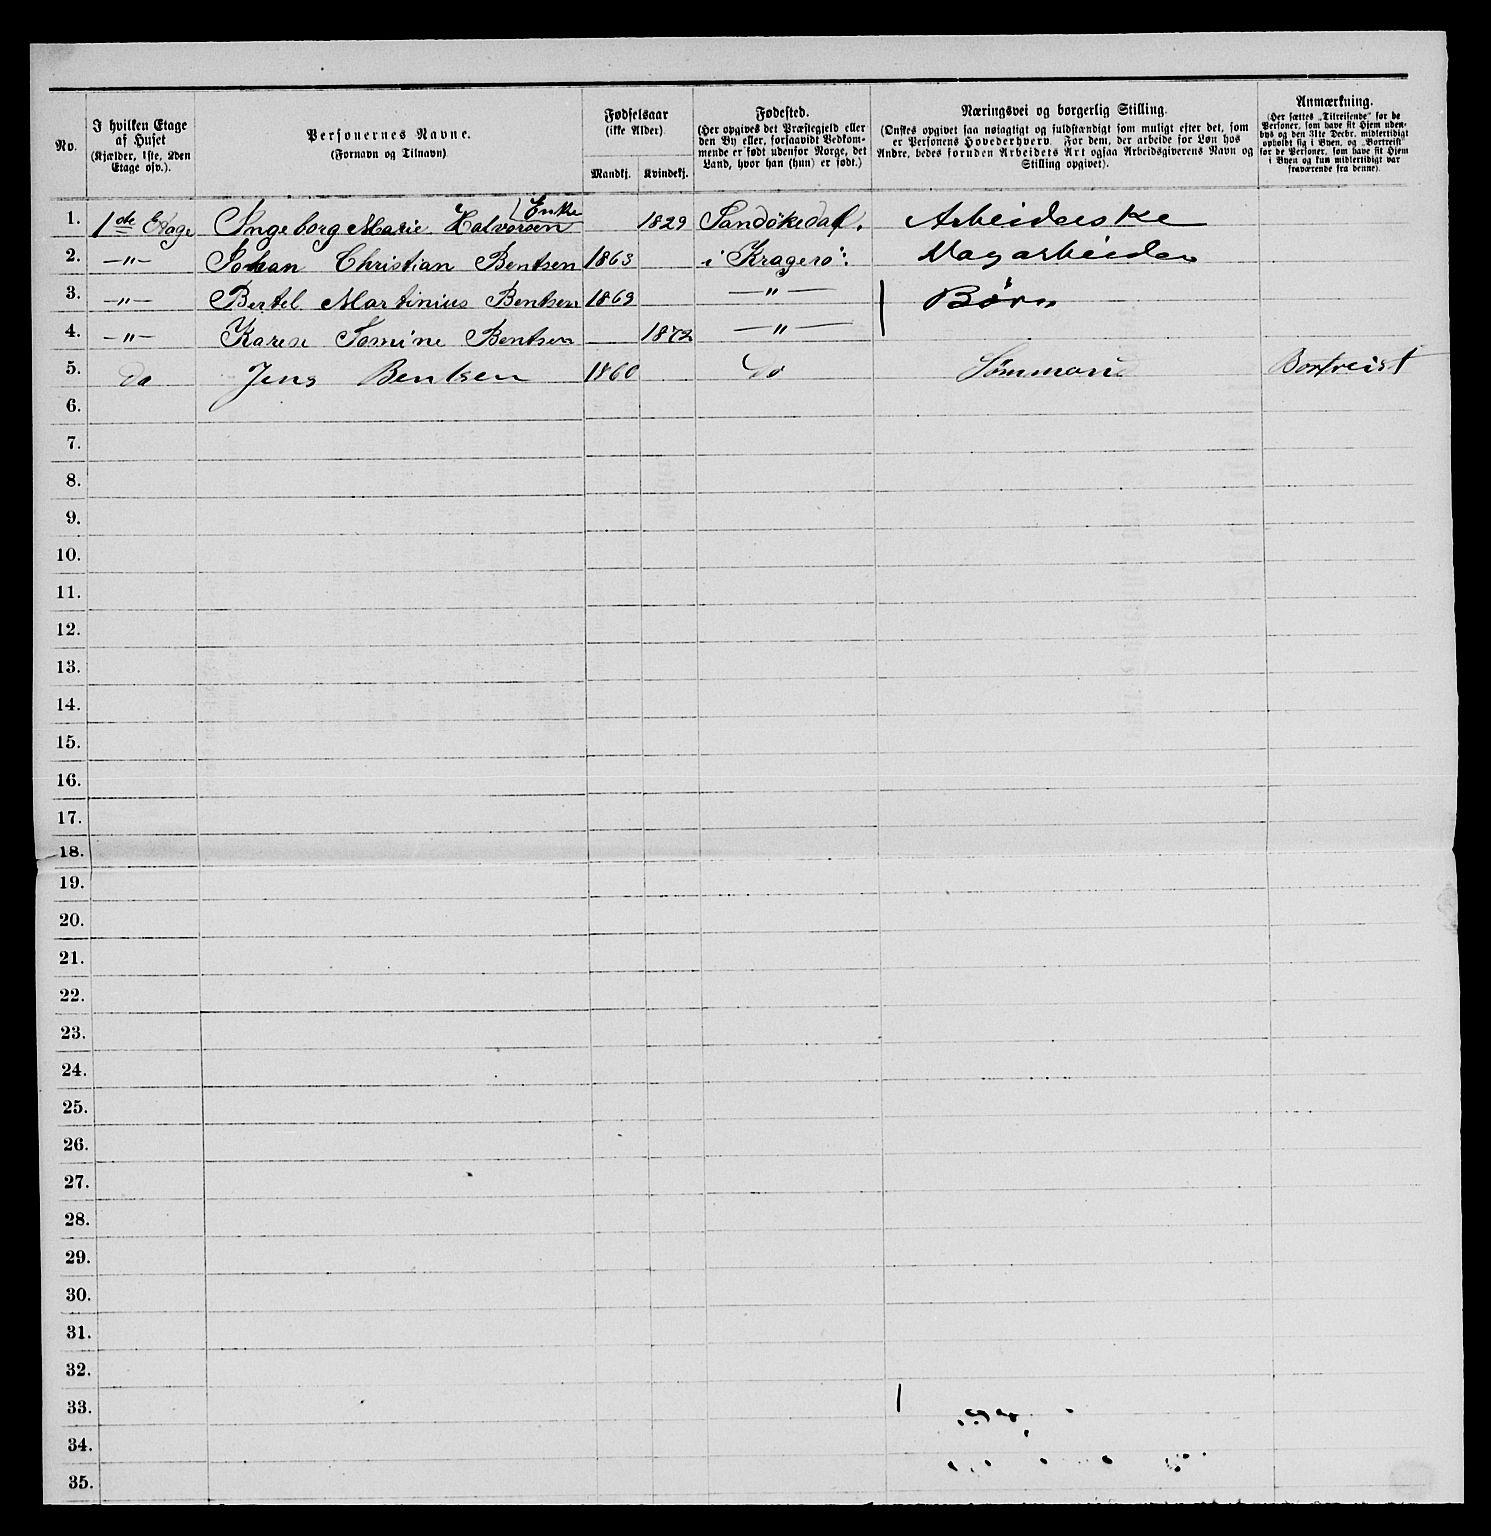 No.
I hvilken Etage
af Huset
(Kjælder, 1ste, 2den
Etage osv.).
Personernes Navne.
(Fornavn og Tilnavn)
Fødselsaar
(ikke Alder)
Mandkj.
Kvindekj.
Fødested.
(Her opgives det Præstegjeld eller
den By eller, forsaavidt Vedkom-
mende er født udenfor Norge, det
Land, hvor han (hun) er født.)
Næringsvei og borgerlig Stilling.
(Ønskes opgivet saa nøiagtigt og fuldstændigt som muligt efter det, som
er Personens Hovederhverv. For dem, der arbeide for Løn hos
Andre, bedes foruden Arbeidets Art ogsaa Arbeidsgiverens Navn og
Stilling opgivet).
Anmærkning.
(Her sættes „Tilreisende" for de
Personer, som have sit Hjem uden-
bys og den 31te Decbr. midlertidigt
opholdt sig i Byen, og „Bortreist"
for de Personer, som have sit Hjem
i Byen og kun midlertidigt var
fraværende fra denne).
Enke
1. 1ste Etage Ingeborg Marie Halvorsen 1829 Sandökedal. Arbeiderske
2. —"— Johan Christian Bentsen 1863 i Kragerø: Magarbeider
3. —"— Bertel Martinius Bentsen 1869 —"— Børn
4. —"— Karese Tomine Bentsen 1872 —"—
5. Do Jens Bentsen 1860 Do Sømmand Bortreist
6.
7.
8.
9.
10.
11.
12.
13.
14.
15.
16.
17.
18.
19.
20.
21.
22.
23.
24.
25.
26.
27.
28.
29.
30.
31.
32.
33.
34.
35.